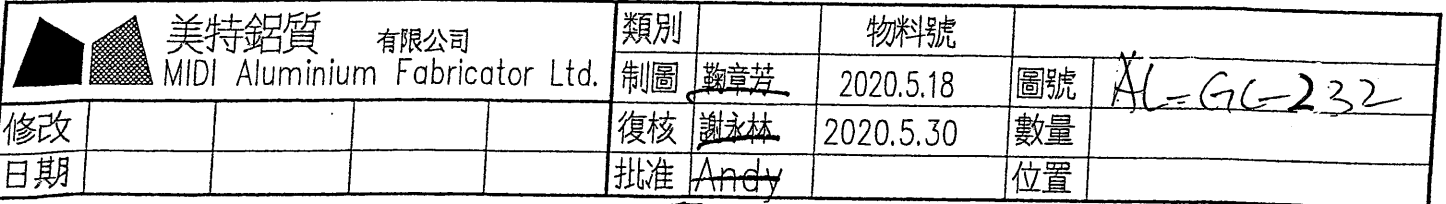 美特鋁質 有限公司
MIDI Aluminium Fabricator Ltd.
類別 物料號
制圖 鞠章芳 2020.5.18 圖號 AL-GC-232
修改 復核 謝永林 2020.5.30 數量
日期 批准 Andy 位置